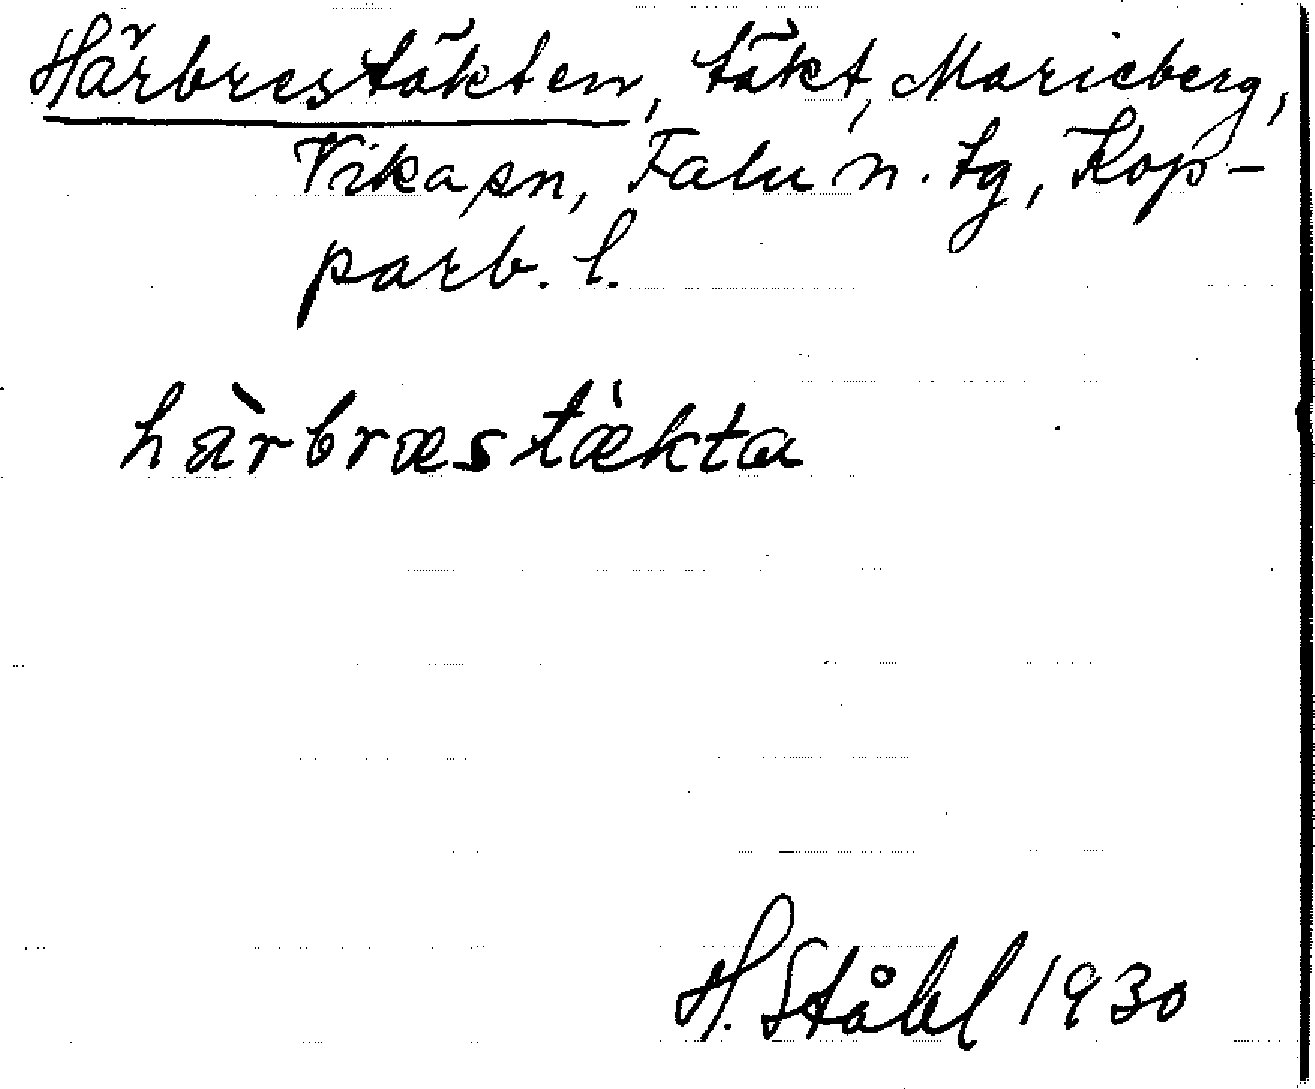 Härbrestäkten, täkt, Marieberg,
Vika sn, Falu n. tg, Kop-
parb. l.
hæ̀rbræstæ̀kta
H. Ståhl 1930